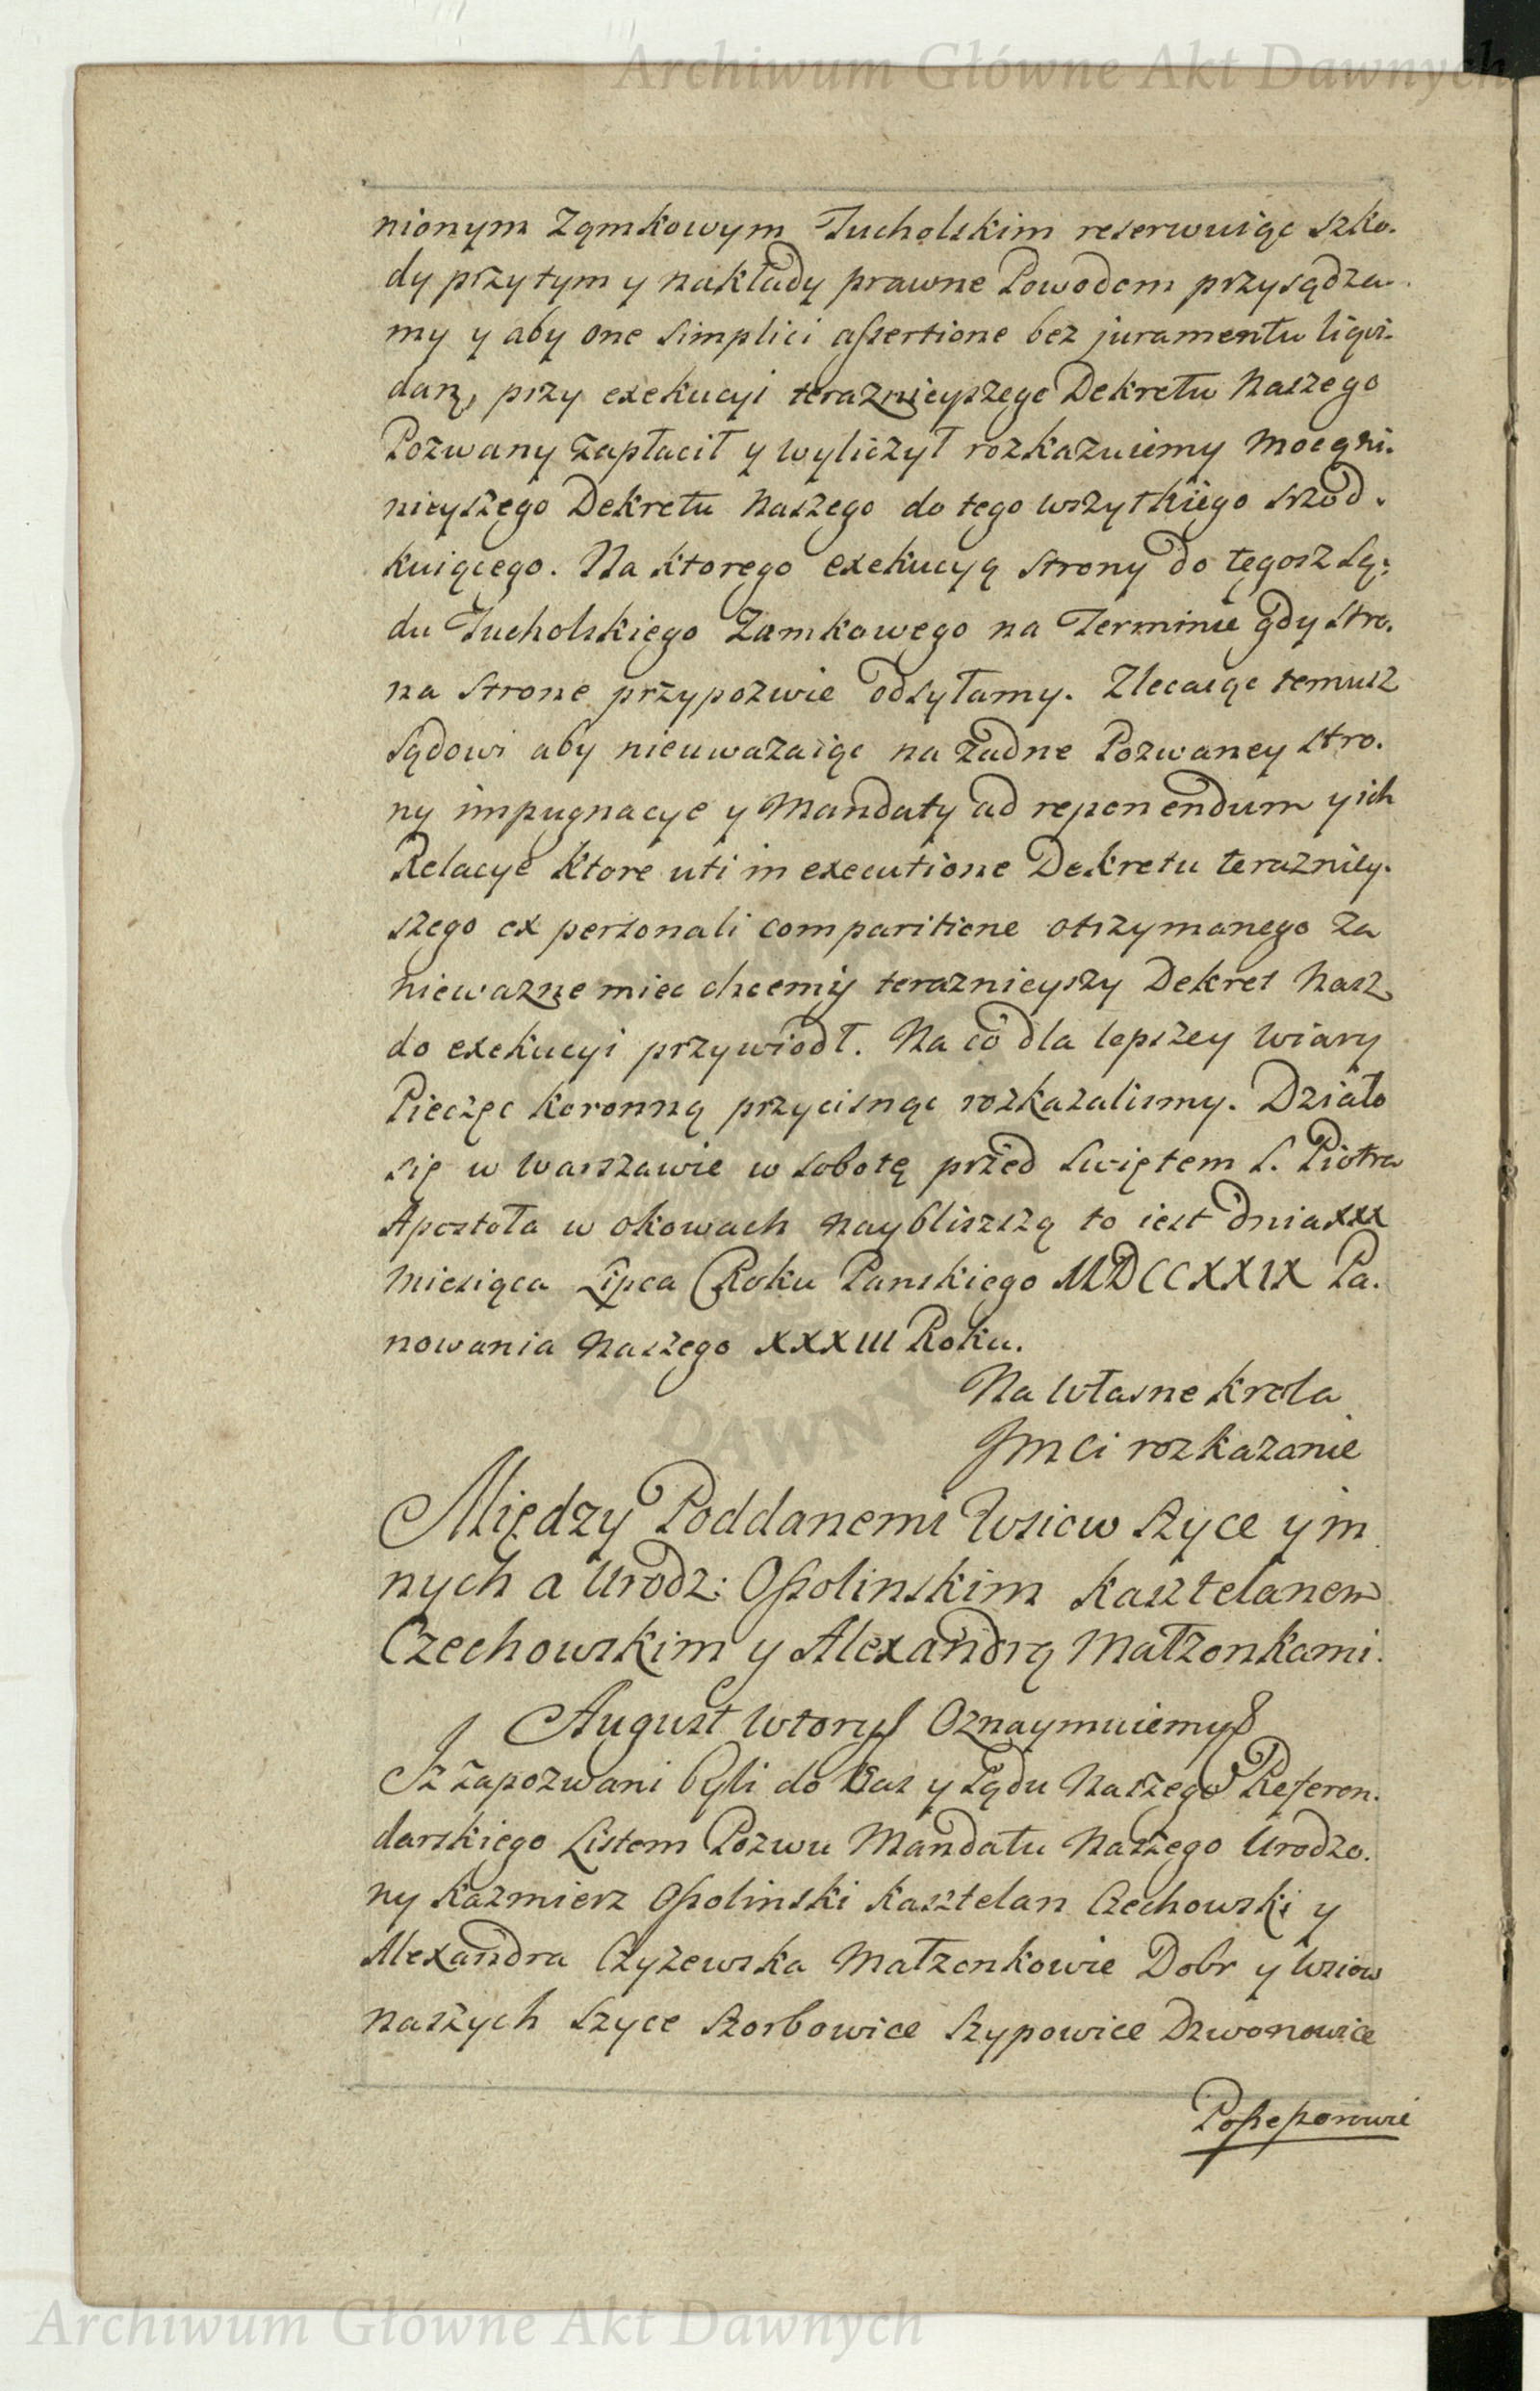 Archiwum Główne Akt Dawnych
nionym Zamkowym Tucholskim reserwuiąc szko.
dy przytym y nakłady prawne Powodom przysądza.
my y aby one simplici assertione bez juramentu liqvi.
dan, przy exekucyi teraznieyszego Dekretu Naszego
Pozwany zapłacił y wyliczył rozkazuiemy mocą ni.
nieyszego Dekretu Naszego do tego wszytkiego szod.
kuiącego. Na ktorego exekucyą strony do tegosz Są:
du Tucholskiego Zamkowego na Terminie gdy stro.
na strone przypozwie odsyłamy. Zlecaiąc temusz
Sądowi aby nieuwazaiąc na żadne Pozwaney stro.
ny impugnacye y Mandaty ad reponendum y ich
Relacye ktore uti in executione Dekretu terazniey.
szego ex personali comparitione otrzymanego za
niewazne miec chcemy teraznieyszy Dekret Nasz
do exekucyi przywiodł. Na co dla lepszey wiary
Pieczęc koronną przycisnąc rozkazalismy. Działo
się w Warszawie w sobotę przed Swiętem S. Piotra
Apostoła w okowach naybliszszą to iest dnia XXX
Miesiąca Lipca Roku Panskiego MDCCXXIX Pa.
nowania Naszego XXXIII Roku.
Na własne krola
Jmci rozkazanie
Między Poddanemi Wsiow Szyce y in
nych a Urodz: Ossolinskim kasztelanem
Czechowskim y Alexandrą Małzonkami.
August Wtory Oznaymuiemy
Iz zapozwani byli do Nas y Sądu Naszego Referen.
darskiego Listem Pozwu Mandatu Naszego Urodzo.
ny Kazmierz Ossolinski Kasztelan Czechowski y
Alexandra Czyzewska Małzonkowie Dobr y Wsiow
naszych Szyce Szorbowice Szypowice Dzwonowice
Archiwum Główne Akt Dawnych